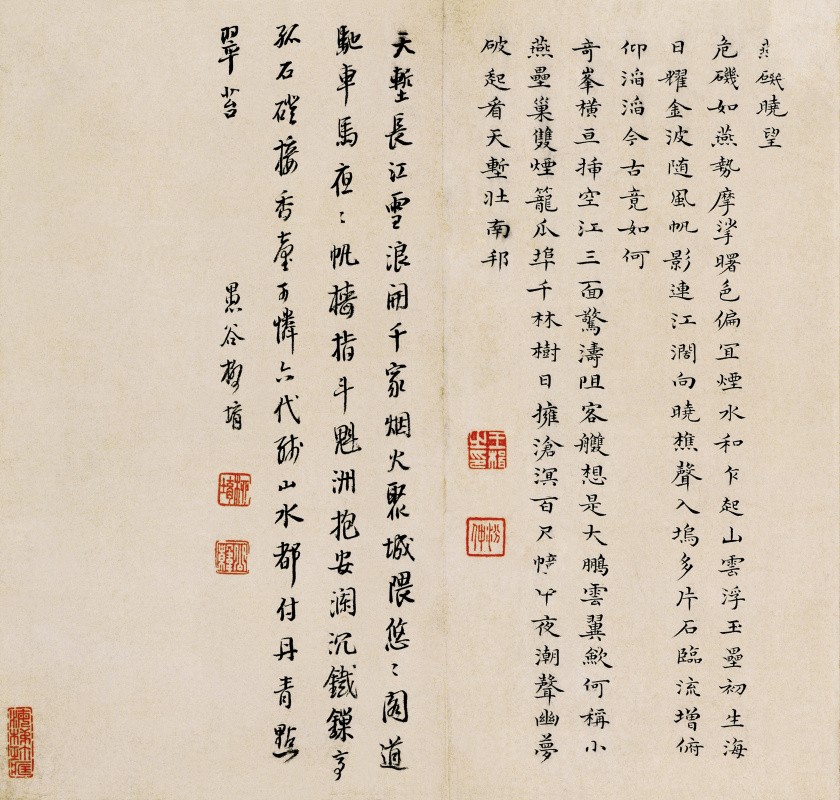 燕磯曉望
危磯如燕勢摩挲曙色偏宜煙水和乍起山雲浮玉壘初生海
日耀金波随風帆影連江濶向曉樵聲入塢多片石臨流增俯
仰滔滔今古竟如何
奇峯橫亘揷空江三面驚濤阻客艭想是大鵬雲翼歛何稱小
燕壘巢雙煙籠瓜埠千林樹日擁滄溟百尺幢午夜潮聲幽夢
破起看天塹壯南邦
天塹長江雪浪開千家烟火聚城隈悠〻閣道
馳車馬夜〻帆檣指斗魁洲抱安瀾沉鐵鏁亭
孤石磴接香臺可憐六代殘山水都付丹青點
翠苔
愚谷